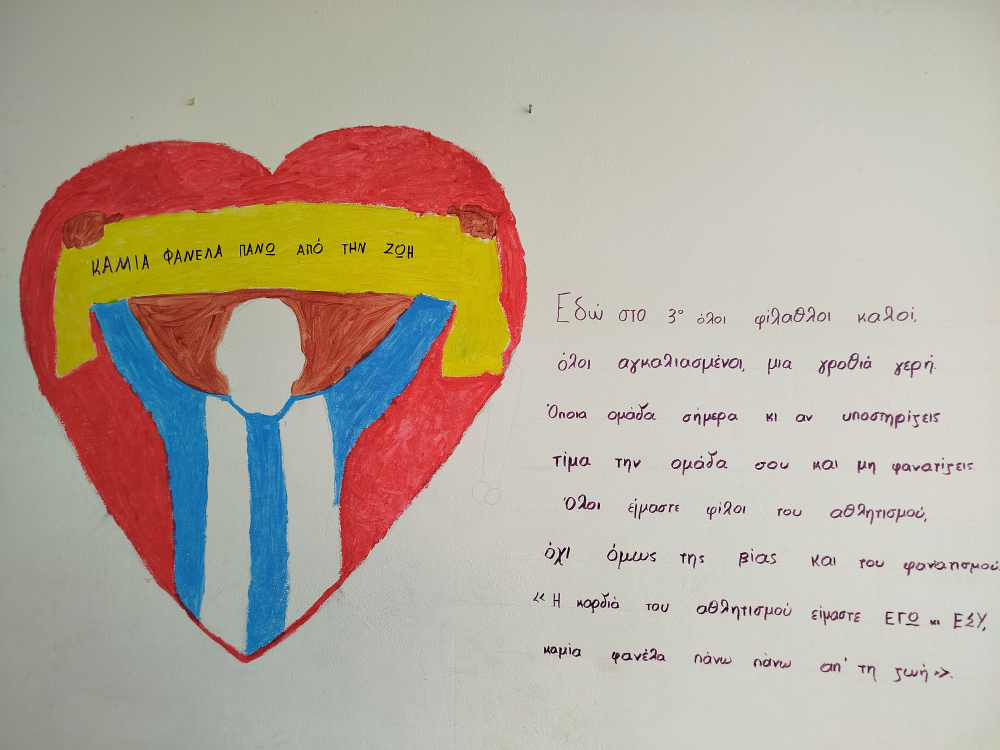 ΚΑΜΙΑ ΦΑΝΕΛΑ ΠΑΝΩ ΑΠΌ ΤΗΝ ΖΩΗ
Εδώ στο 3° όλοι φίλαθλοι καλοί,
όλοι αγκαλιασμένοι, μια γροθιά γερή.
Όποια ομάδα σήμερα κι αν υποστηρίζεις
τίμα την ομάδα σου και μη φανατίζεις.
Όλοι είμαστε φίλοι του αθλητισμού,
όχι όμως της βίας και του φανατισμού.
«Η καρδιά του αθλητισμού είμαστε ΕΓΩ κι ΕΣΥ,
καμία φανέλα πάνω πάνω απ' τη ζωή».